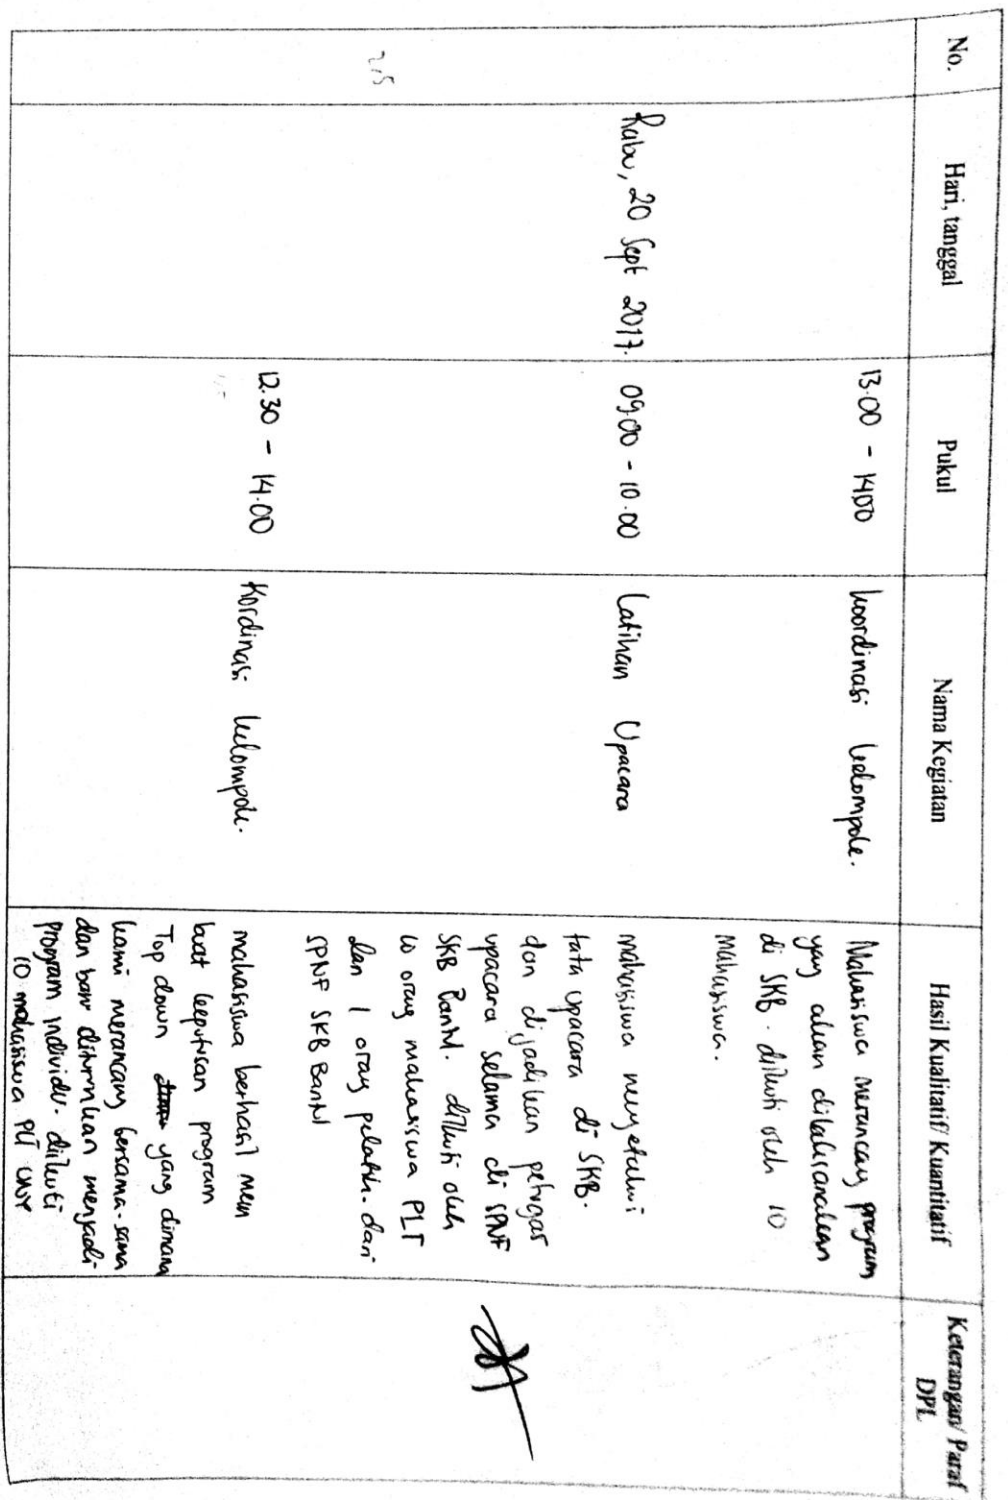 No. Hari, tanggal Pukul Nama Kegiatan Hasil Kualitatif/ Kuantitatif Keterangan/ Paraf
DPL
13.00 - 14.00 koordinasi kelompok. Mahasiswa merancang program
yang akan dilaksanakan
di SKB. diikuti oleh 10
Mahasiswa.
Rabu, 20 Sept 2017. 09.00 - 10.00 Latihan Upacara mahasiswa mengetahui
tata upacara di SKB.
dan dijadikan petugas
upacara selama di SPNF
SKB Bantul. diikuti oleh
10 orang mahasiswa PLT
dan 1 orang pelatih dari
SPNF SKB Bantul
12.30 - 14.00 Kordinasi kelompok. mahasiswa berhasil mem
buat keputusan program
Top down yang dimana
kami merancang bersama-sama
dan baru diturunkan menjadi
program individu. diikuti
10 mahasiswa PLT UNY